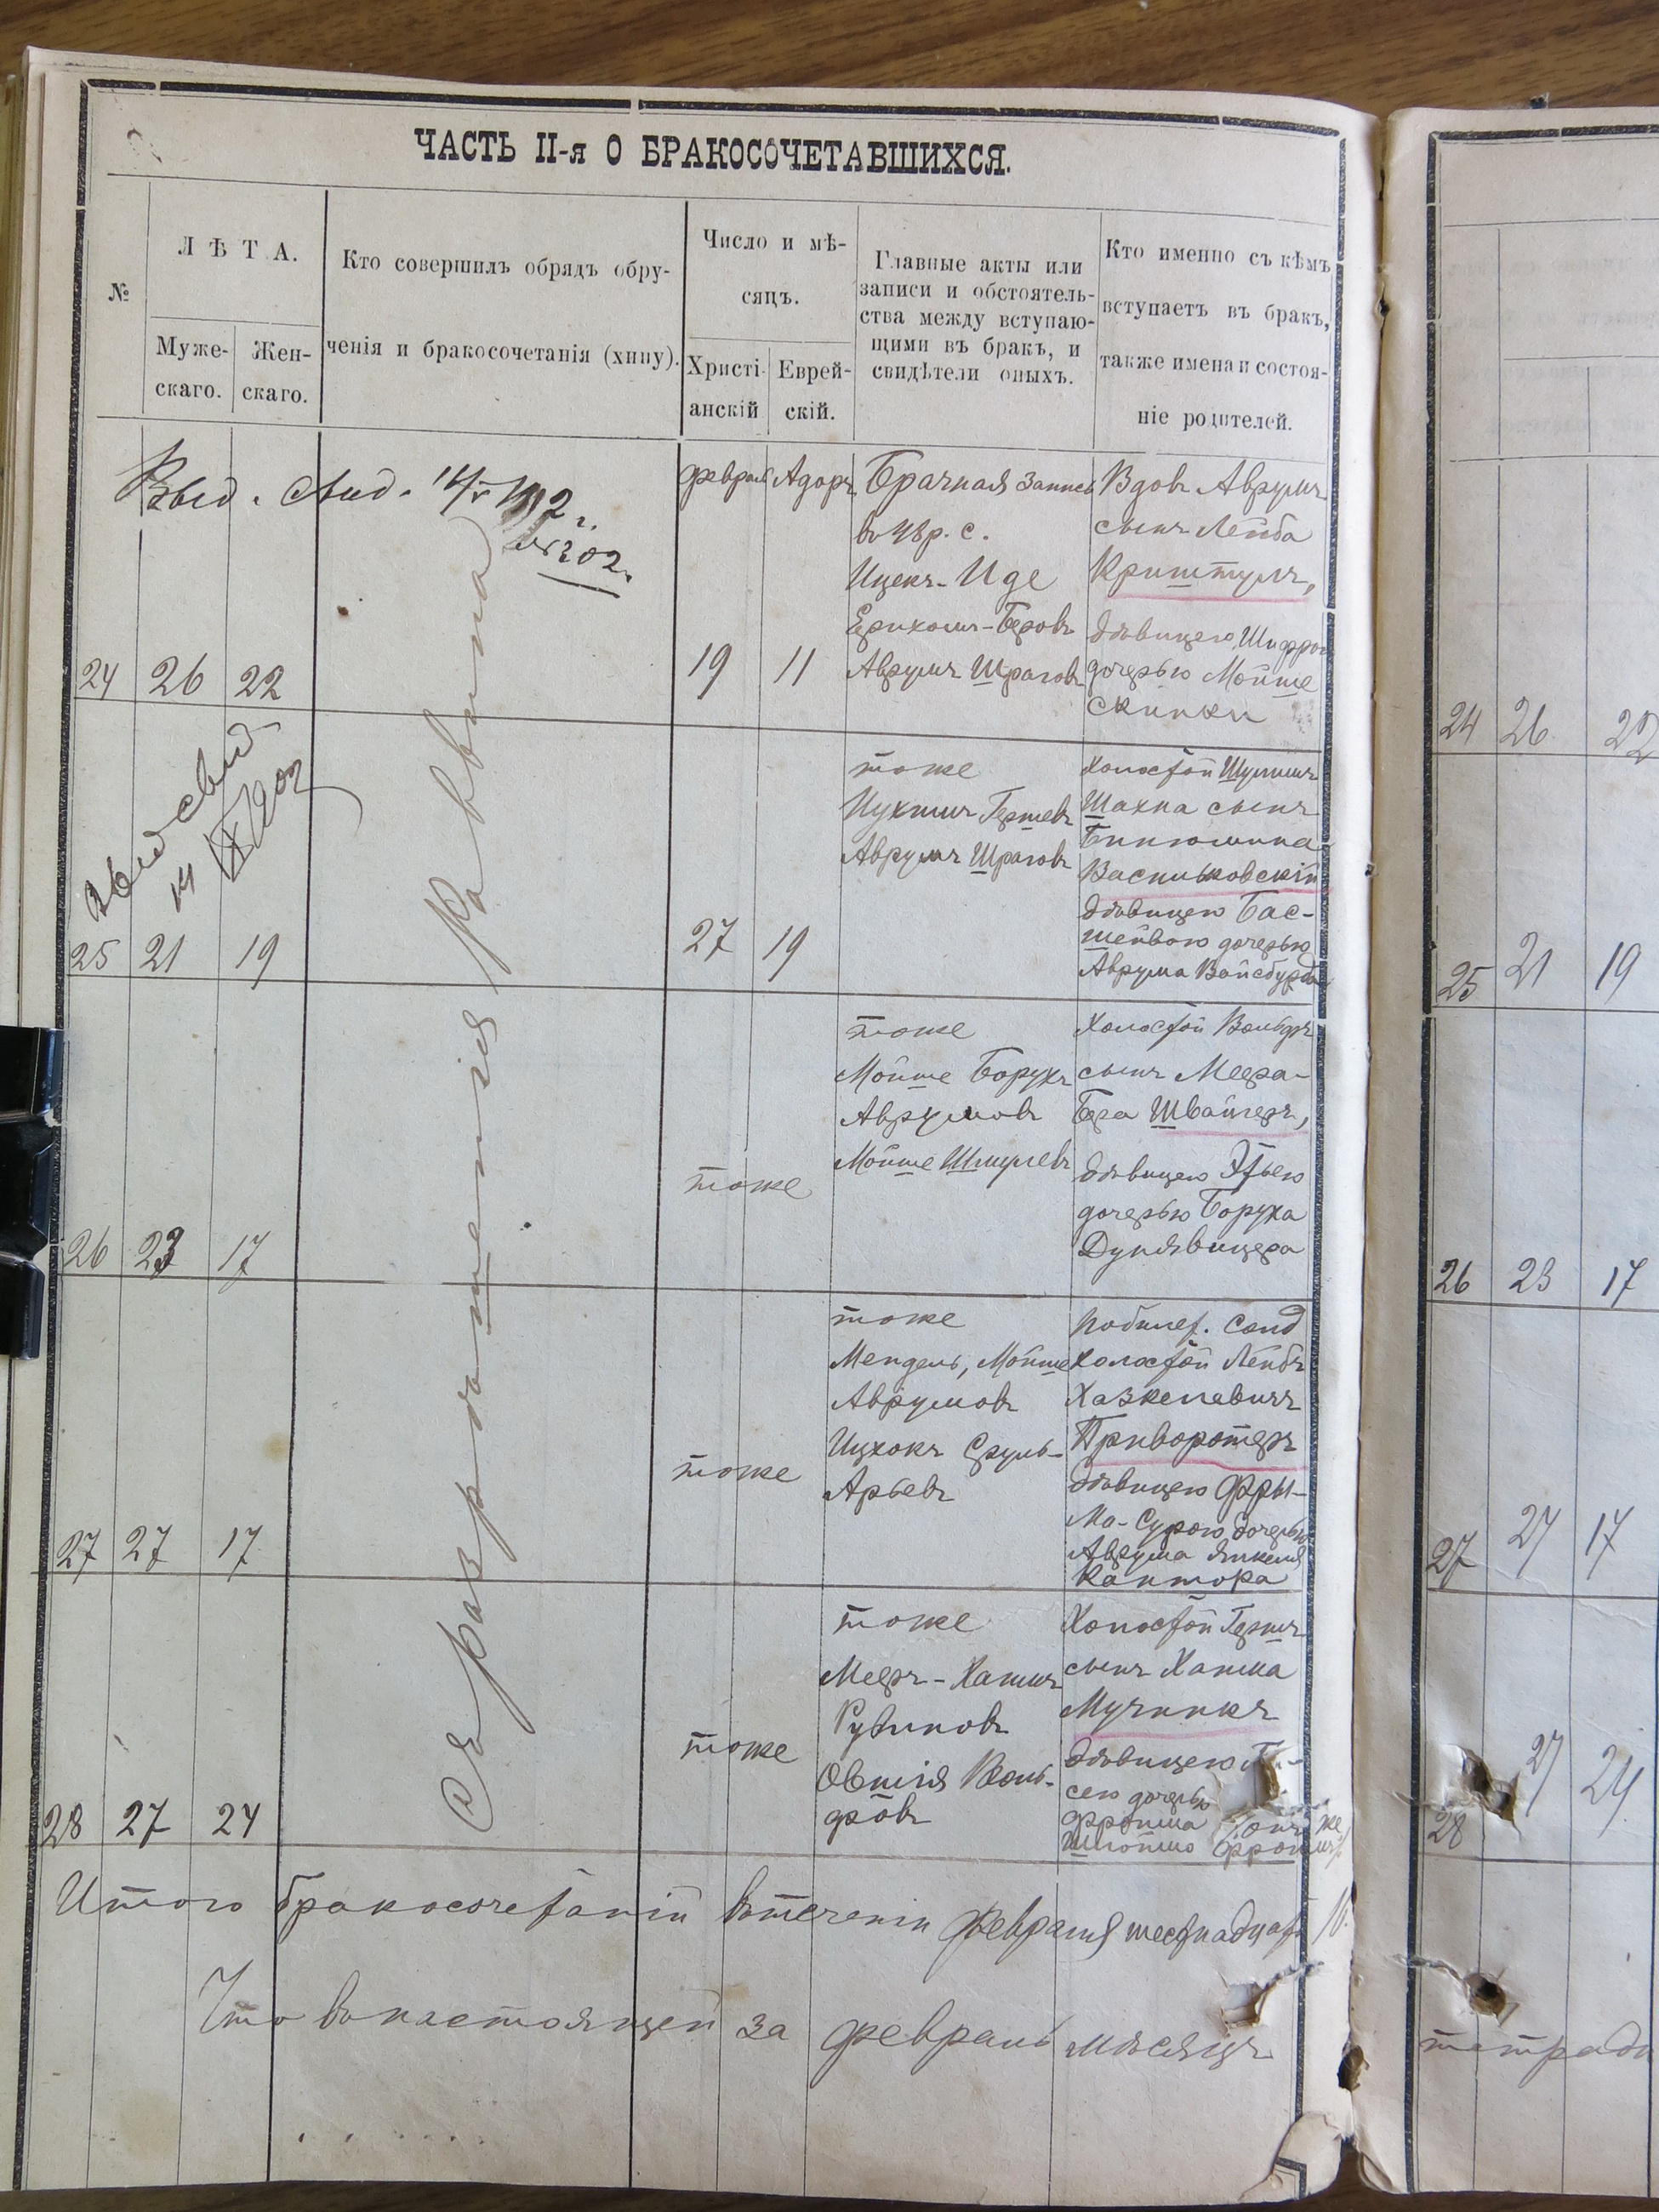 ЧАСТЬ II-я О БРАКОСОЧЕТАВШИХСЯ.
№
ЛѢТА.
Муже-
скаго.
Жен-
скаго.
Кто совершилъ обрядъ обру-
ченія и бракосочетанія (хипу).
Число и мѣ-
сяцъ.
Христі-
анскій
Еврей-
скій.
Главные акты или
записи и обстоятель-
ства между вступаю-
щими въ бракъ, и
свидѣтели оныхъ.
Кто именно съ кѣмъ
вступаетъ въ бракъ,
также имена и состоя-
ніе родителей.
Выд. свид. 14/V 1912 г.
№ 202.
Съ разрѣшенія Раввина
24 26 22
февраля Адоръ
19 11
Брачная запись
въ 48 р. с.
Ицекъ-Иде
Ерихомъ-Беровъ
Аврумъ Шраговъ
Вдов. Аврумъ
сынъ Лейба
Криштулъ,
дѣвицею Шифрою
дочерью Мойше
Скипки
выд свид
14 IX/1902
25 21 19
27 19
тоже
Нухимъ Гершевъ
Аврумъ Шраговъ
Холостой Шулимъ
Шахна сынъ
Биніомина
Васильковскій
дѣвицею Бас-
шейвою дочерью
Аврума Вайсбурда
26 23 17
тоже
тоже
Мойше Борухъ
Аврумовъ
Мойше Шмулевъ
Холостой Вольфъ
сынъ Меера-
Бера Швайгеръ,
дѣвицею Этьею
дочерью Боруха
Дунявицера
27 27 17
тоже
тоже
Мендель, Мойше
Аврумовъ
Ицхокъ Сруль-
Арьевъ
по билет. солд
холостой Лейбъ
Хазкелевичъ
Приворотеръ
дѣвицею Фры-
ма-Сурою дочерью
Аврума Янкеля
Кантора
28 27 24
тоже
тоже
Мееръ-Хаимъ
Рувиновъ
Овшія Воль-
фовъ
Холостой Гершъ
сынъ Хаима
Мучникъ
дѣвицею
сею дочерью
Фроима онъ же
Шлойма Фроимъ
Итого бракосочетаній въ теченіи февраля шестнадцать 16.
Что въ настоящей за февраль мѣсяцъ
24 26 22
25 21 19
26 23 17
27 27 17
28 27 24
тетради